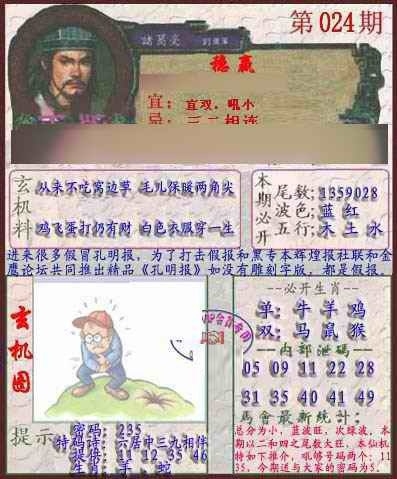 第024期
諸葛亮
稳赢
宜: 宜双.吼小
忌: 三二相连
玄机料
从来不吃窝边草 毛儿保暖两角尖
鸡飞蛋打仍有财 白色衣服穿一生
本期必开
尾数:1359028
波色:蓝 红
五行:木土水
进来很多假冒孔明报,为了打击假报和黑专本辉煌报社联和金
鹰论坛共同推出精品《孔明报》如没有雕刻字版,都是假报.
玄机图
--必开生肖--
单:牛羊鸡
双:马鼠猴
--内部泄码--
05 09 11 22 28
31 35 40 41 49
馬會最新统计:
总分为小,蓝波旺,次绿波,本
期以二和四之尾数大旺,本仙机
特如下推介,吼够号码两个:11
35,今期送与大家的密码为5.
提示
密码:235
特码诗:六居中三九相伴
提供:11 12 35 46
生肖:羊 蛇